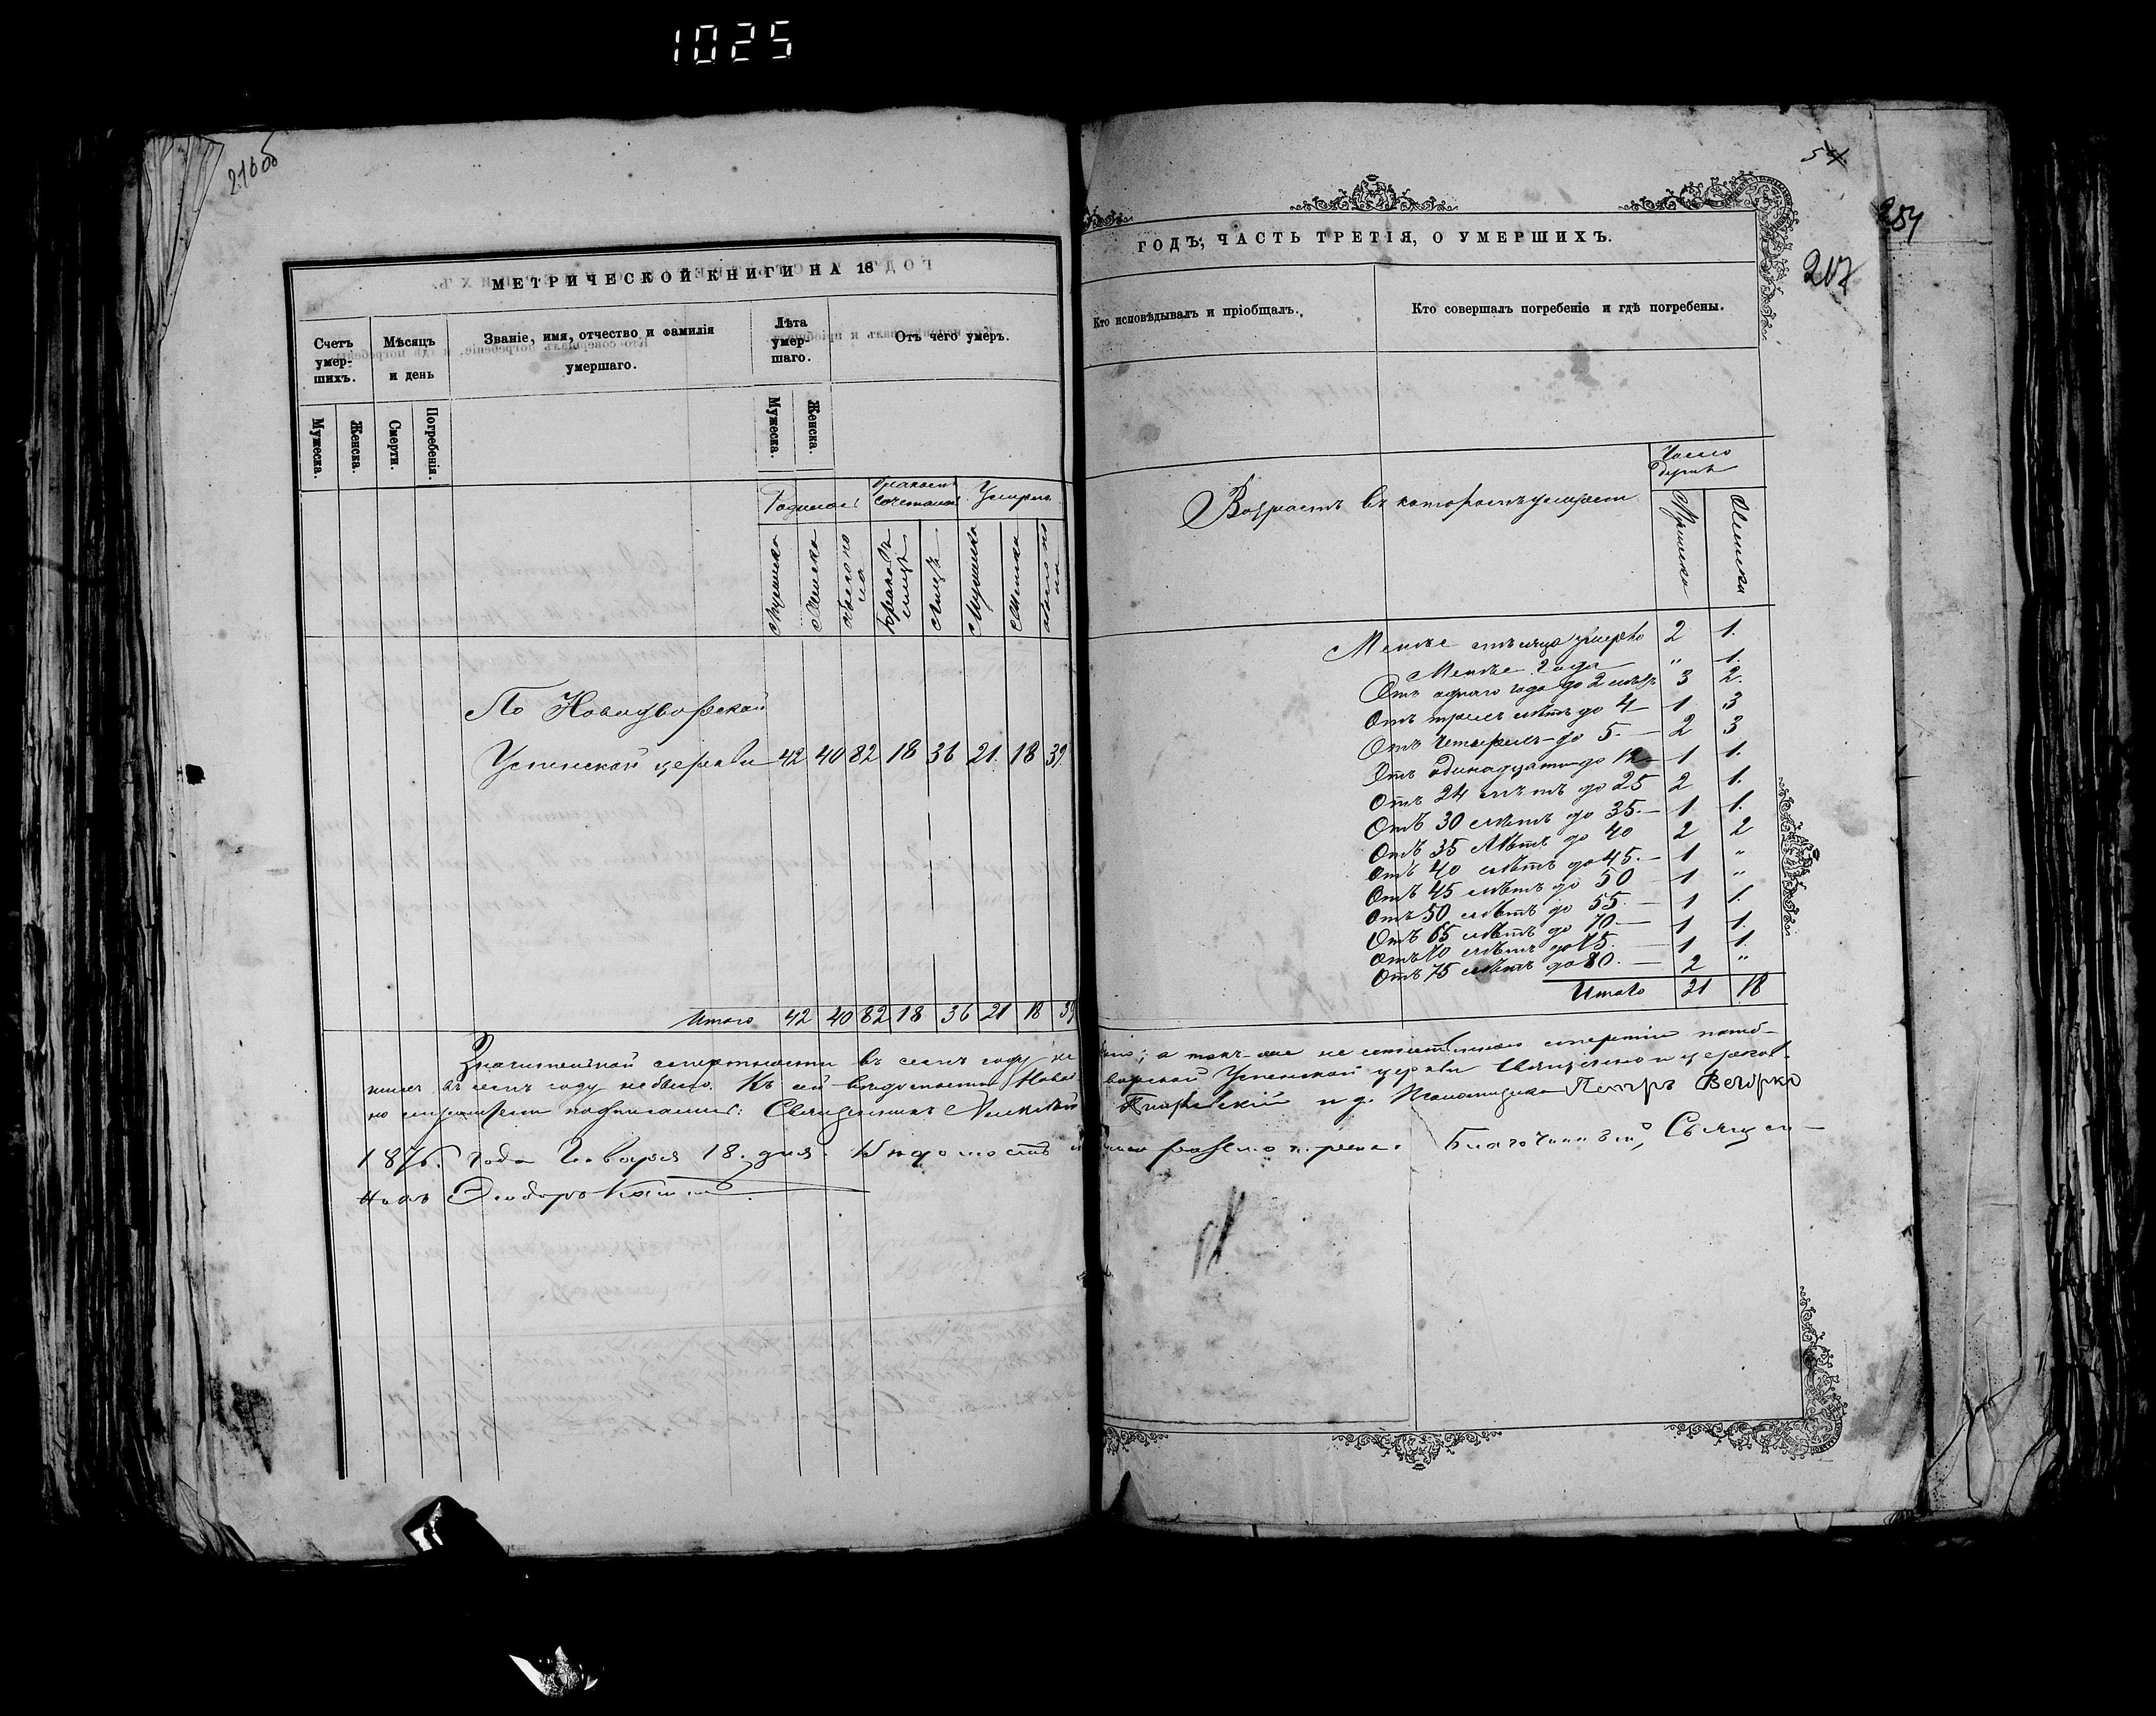 1025
216об
МЕТРИЧЕСКОЙ КНИГИ НА 18
Счетъ умер- шихъ.
Мѣсяцъ и день
Званіе, имя, отчество и фамилія умершаго.
Лѣта умер- шаго.
Отъ чего умеръ.
Мужеска.
Женска.
Смерти.
Погребенія.
Мужеска.
Женска.
Умерло
Мужеска
Женска
Обоего по ла
Лицъ
Мужеска
Женска
По Новодворской
Успенской церкви 42 40 82 18 36 21. 18 39.
Итого 42 40 82 18 36 21 18 39
54
254
217
ГОДЪ, ЧАСТЬ ТРЕТІЯ, О УМЕРШИХЪ.
Кто исповѣдывалъ и пріобщалъ.
Кто совершалъ погребеніе и гдѣ погребены.
Возрастъ въ которомъ умерли
Число
Мужеска
Женска
Менѣе мѣсяца умерло 2 1.
Менѣе года " 1.
Отъ одного года до 2 лѣтъ 3 2.
Отъ трехъ лѣтъ до 4 — 1 3
Отъ четырехъ до 5. — 2 3
Отъ одинадцати до 12 — 1 1.
Отъ 24 лѣтъ до 25 2 1.
Отъ 30 лѣтъ до 35. — 1 1.
Отъ 35 лѣтъ до 40 2 2
Отъ 40 лѣтъ до 45. — 1 "
Отъ 45 лѣтъ до 50 — 1 "
Отъ 50 лѣтъ до 55. — 1 1.
Отъ 65 лѣтъ до 70 — 1 1.
Отъ 70 лѣтъ до 75. — 1 1.
Отъ 75 лѣтъ до 80. — 2 "
Итого 21 18
Значительной смертности въ семъ году не было; а такъ-же не смертію погиб-
шихъ въ семъ году не было. Къ сей вѣдомости Новод ворской Успенской церкви Священно и церков-
но служители подписались: Священникъ и д. Псаломщика Петръ Вечорко
1876. года Января 18. дня. Вѣдомость Благочинный, Священ-
никъ